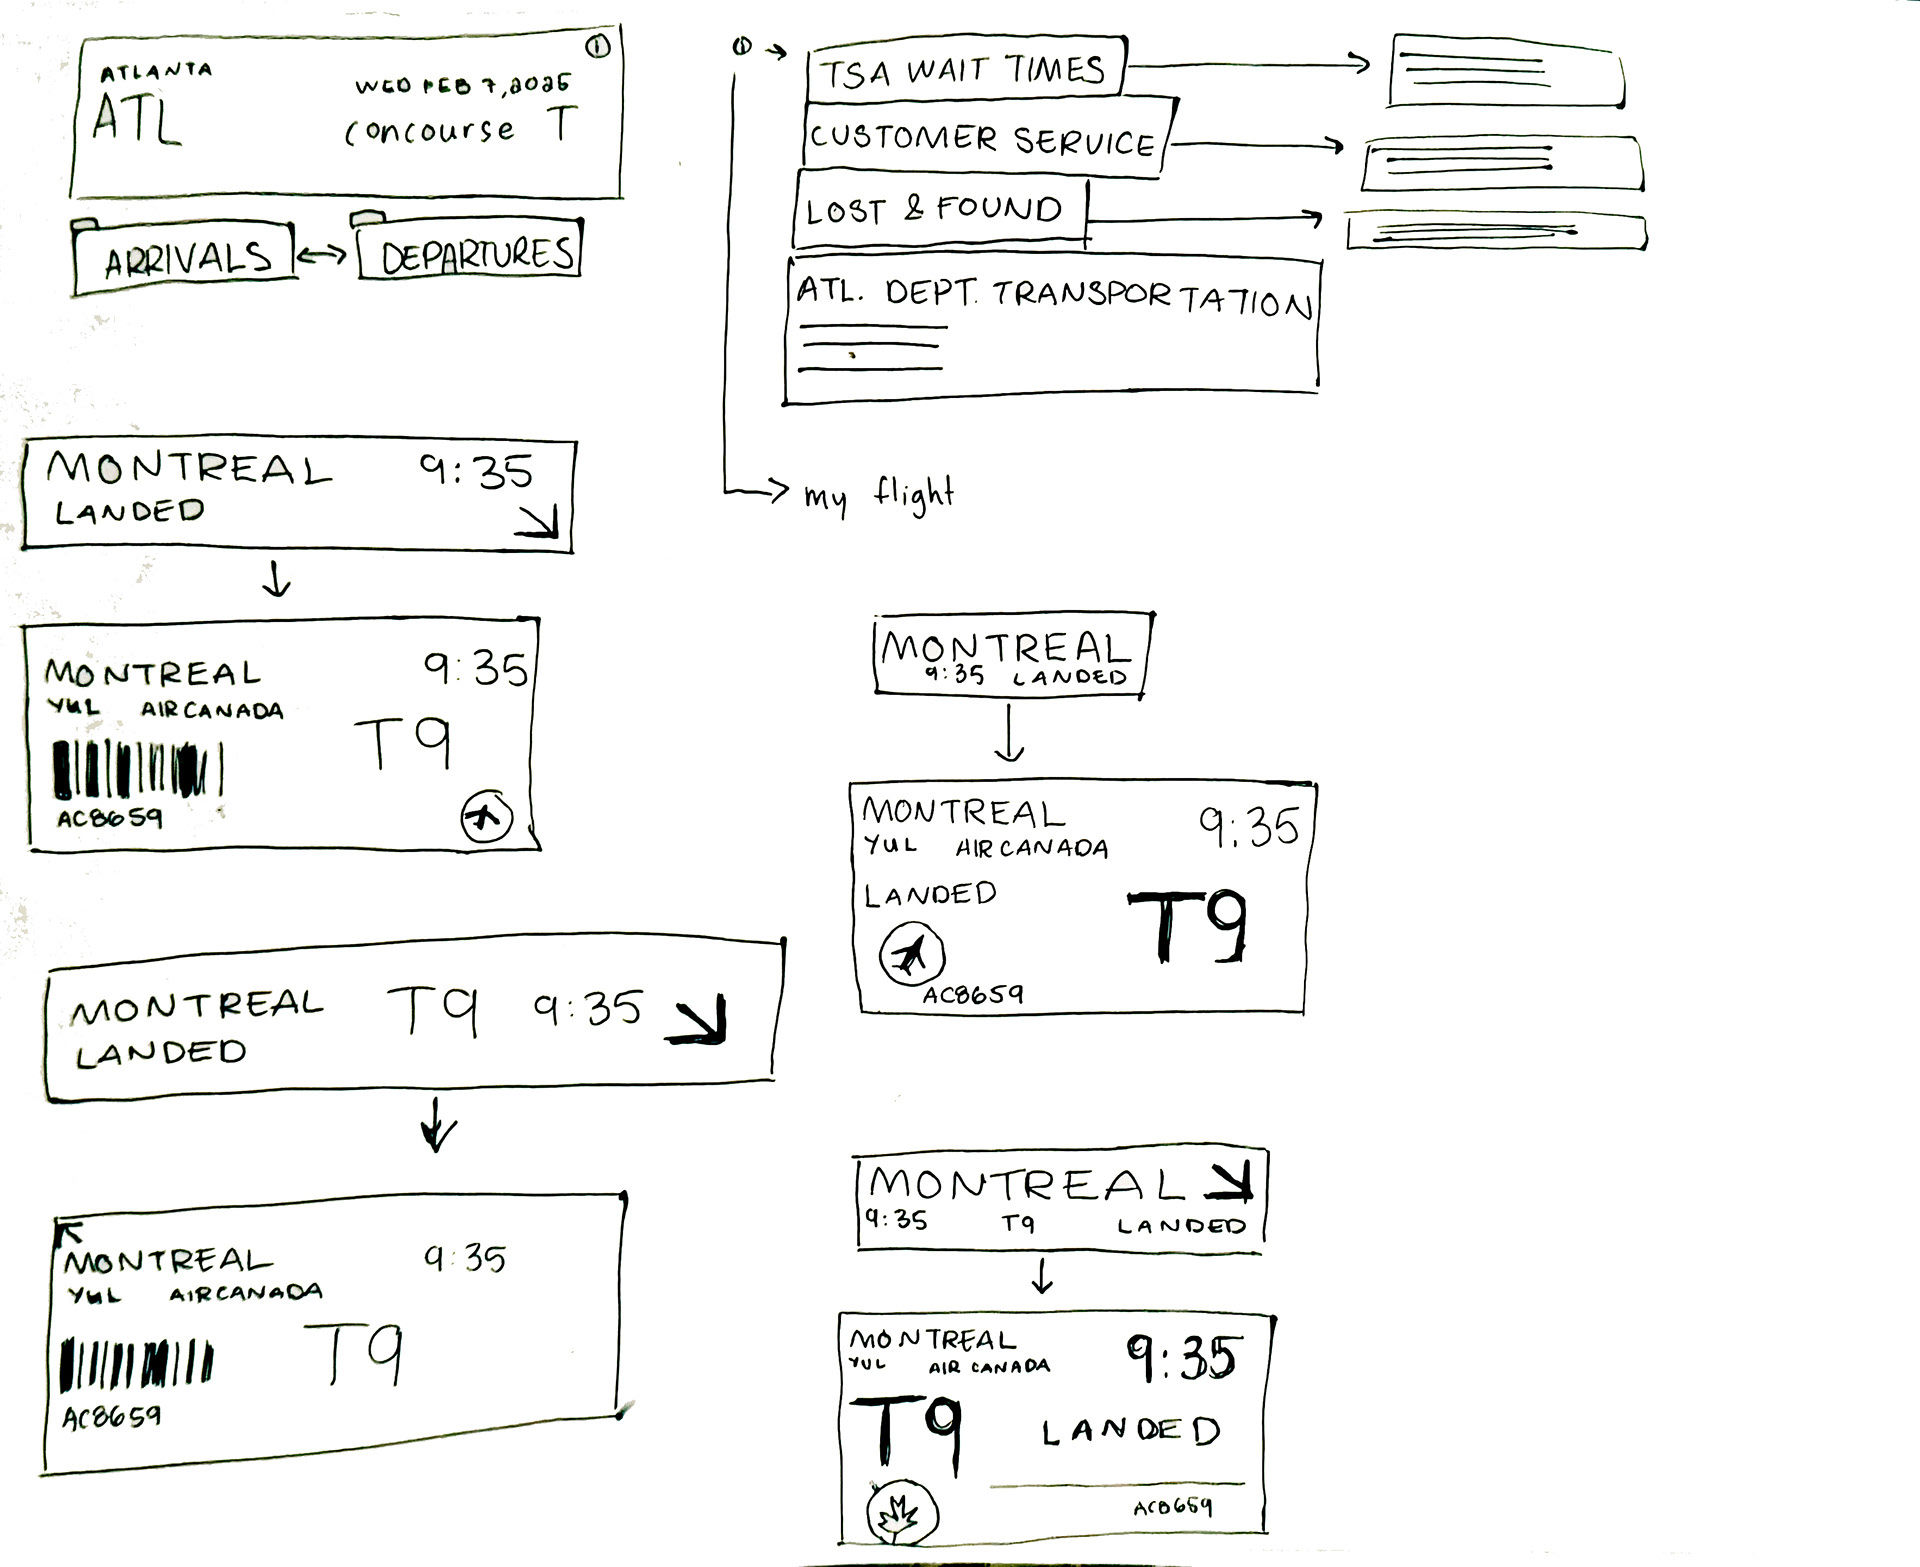 ATLANTA
ATL
WED FEB 7, 2025
concourse T
ARRIVALS
DEPARTURES
TSA WAIT TIMES
CUSTOMER SERVICE
LOST & FOUND
ATL. DEPT. TRANSPORTATION
my flight
MONTREAL 9:35
LANDED
MONTREAL 9:35
YUL AIRCANADA
T9
AC8659
MONTREAL T9 9:35
LANDED
MONTREAL 9:35
YUL AIRCANADA
T9
AC8659
MONTREAL
9:35 LANDED
MONTREAL 9:35
YUL AIR CANADA
LANDED T9
AC8659
MONTREAL
9:35 T9 LANDED
MONTREAL 9:35
YUL AIR CANADA
T9 LANDED
AC8659